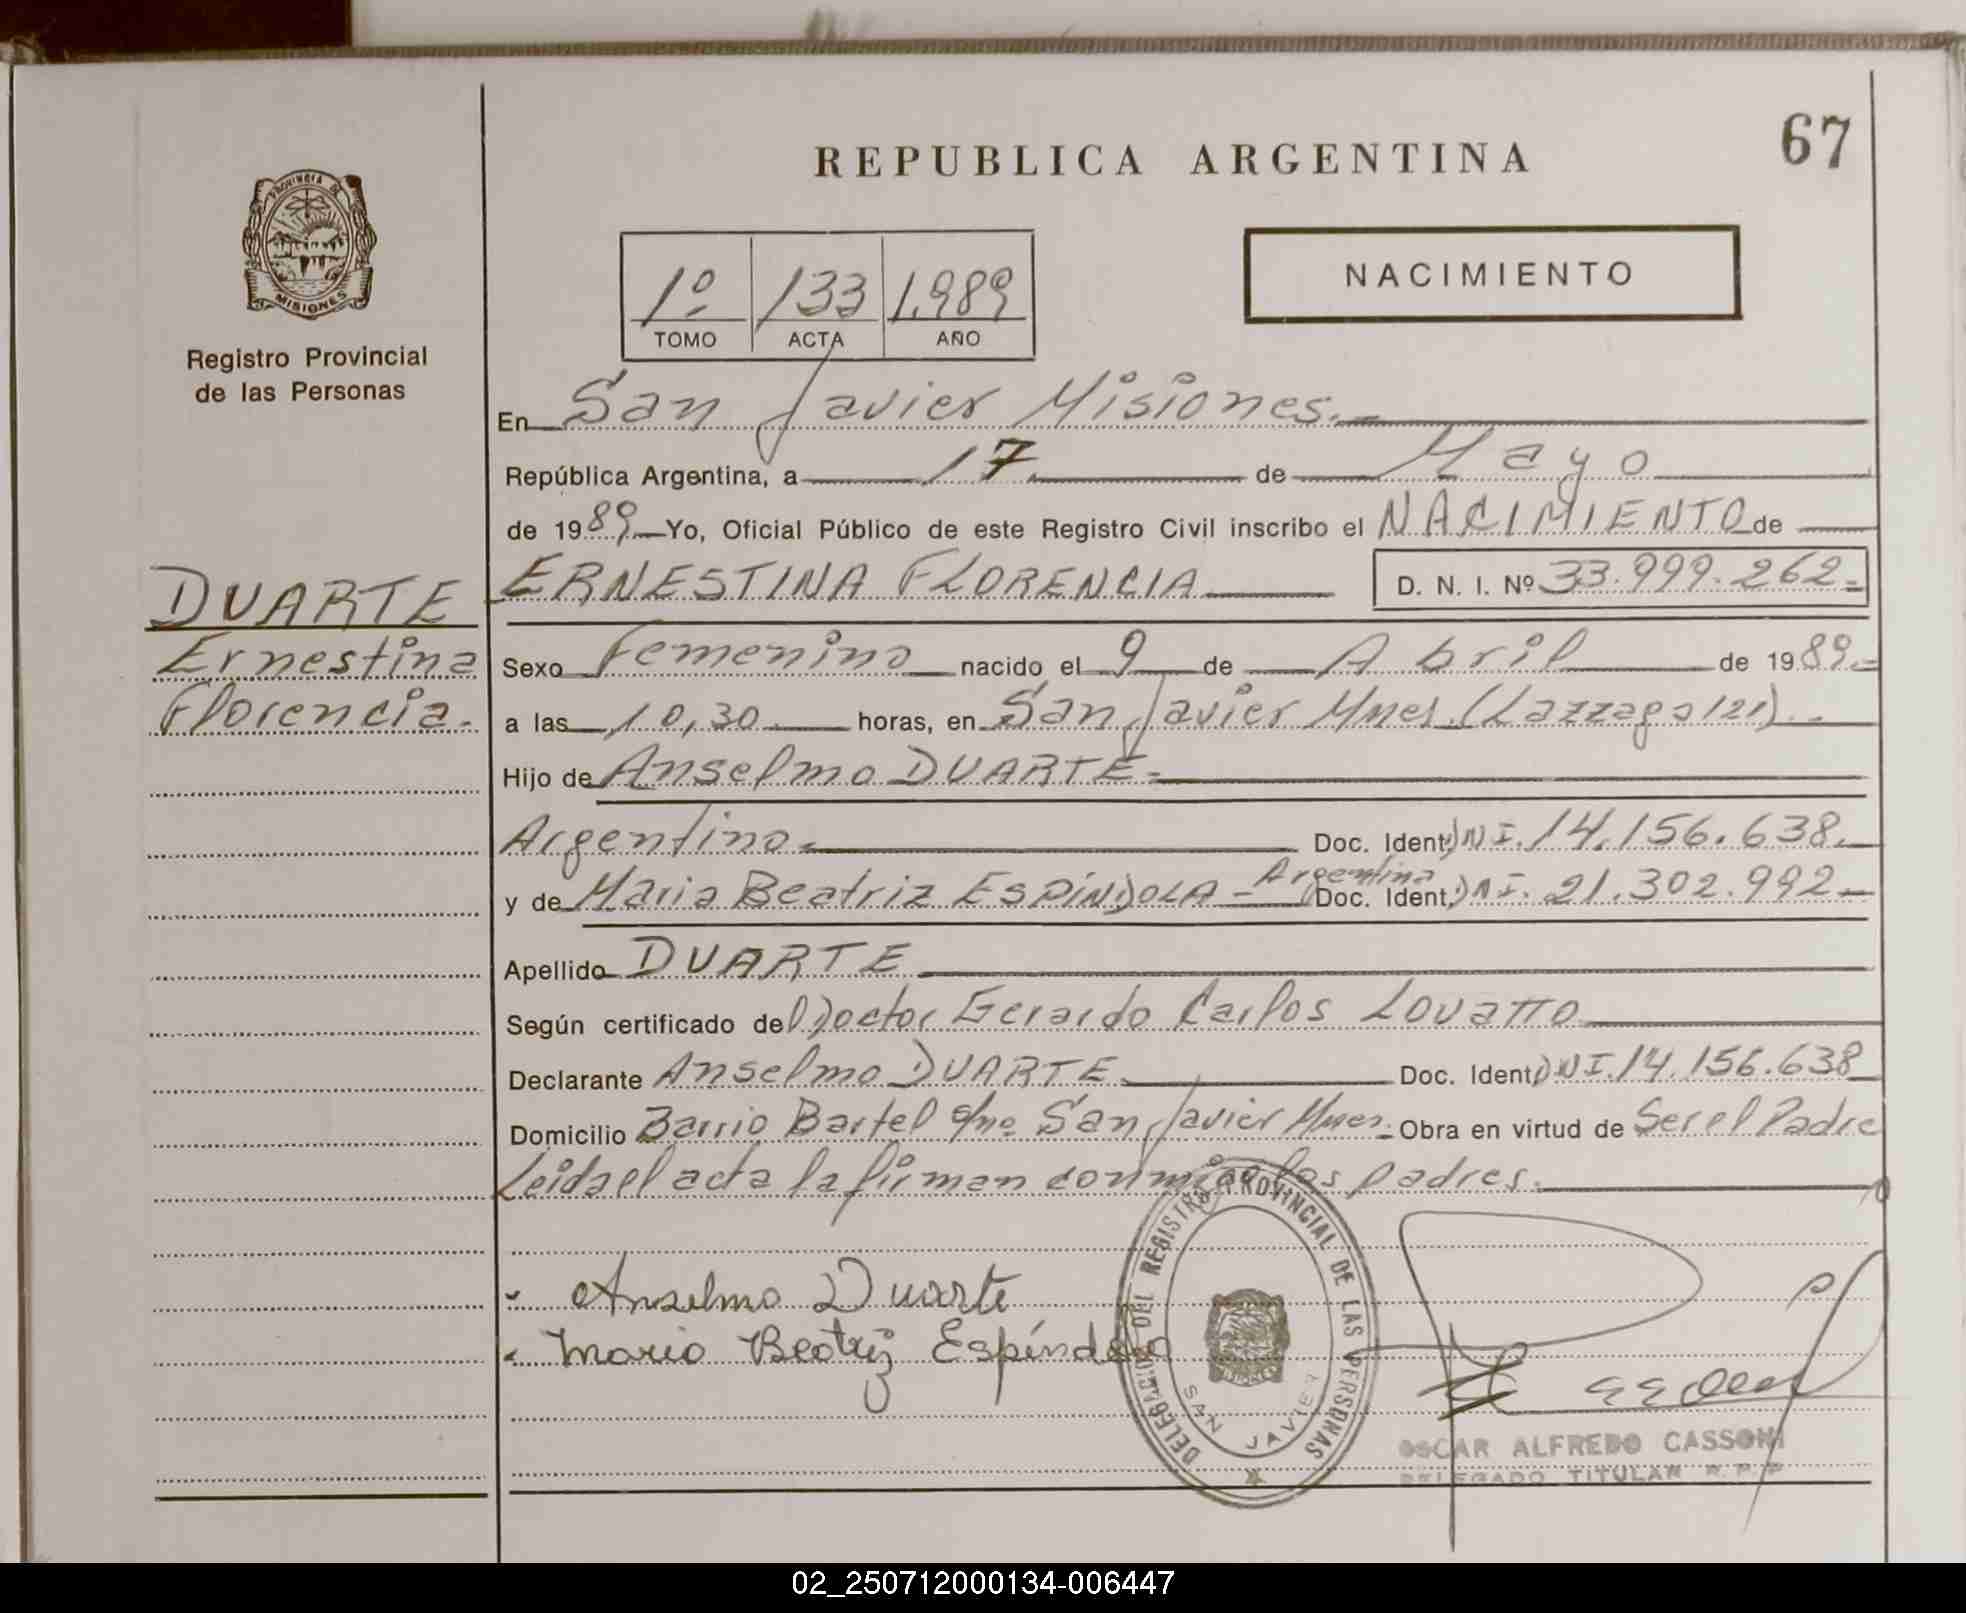 67
REPUBLICA ARGENTINA
PROVINCIA DE
MISIONES
Registro Provincial
de las Personas
1º 133 1.989
TOMO ACTA AÑO
NACIMIENTO
En San Javier Misiones.
República Argentina, a 17 de Mayo
de 1989 Yo, Oficial Público de este Registro Civil inscribo el NACIMIENTO de
DUARTE
Ernestina
Florencia.
ERNESTINA FLORENCIA D. N. I. Nº 33.999.262
Sexo Femenino nacido el 9 de Abril de 1989.
a las 10,30 horas, en San Javier Mnes. (Lazzaga 121).
Hijo de Anselmo DUARTE
Argentino Doc. Ident. DNI. 14.156.638.
y de Maria Beatriz ESPíNDOLA - Argentina Doc. Ident. DNI. 21.302.992
Apellido DUARTE
Según certificado del Doctor Gerardo Carlos Lovatto
Declarante Anselmo DUARTE Doc. Ident. DNI. 14.156.638
Domicilio Barrio Bartel s/nº San Javier Mnes. Obra en virtud de Ser el Padre
Leida el acta la firman conmigo los padres.
Anselmo Duarte
Maria Beatriz Espíndola
DELEGACION DEL REGISTRO PROVINCIAL DE LAS PERSONAS
SAN JAVIER
OSCAR ALFREDO CASSONI
DELEGADO TITULAR R. P. P.
02_250712000134-006447